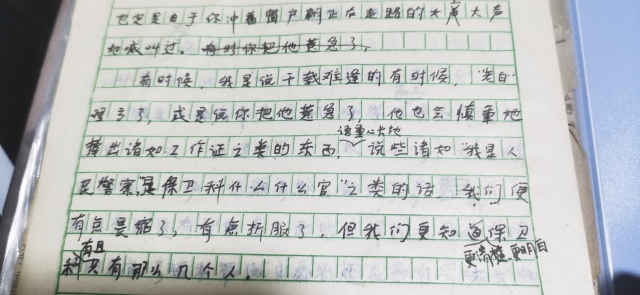 也定是由于你冲着窗户朝正在走路的大声大声
如感叫过，有时你把他惹急了，
有时候，我是说千载难逢的有时候，"老白"
理亏了，或是说你把他惹急了，他也会慎重地
捧出诸如工作证之类的东西，语重心长地说些诸如"我是人
民警察""是保卫科什么什么官"之类的话，我们便
有点畏缩了，有点折服了，但我们更知道保卫
更清楚更明白
科只有那么几个人．
而且